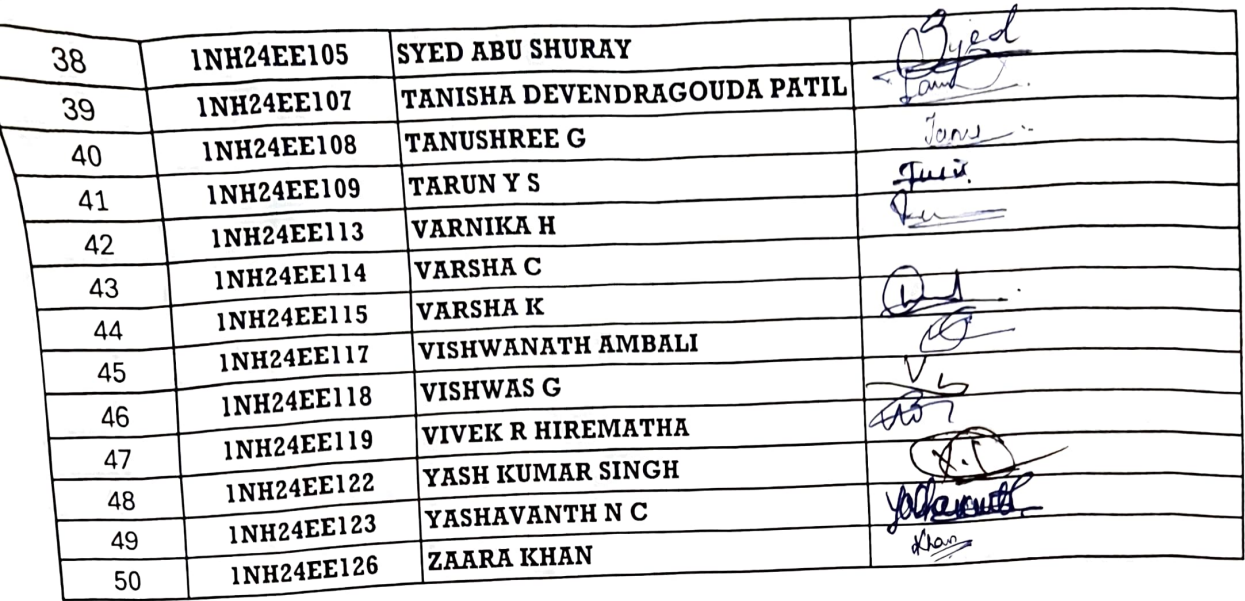 38 1NH24EE105 SYED ABU SHURAY Syed
39 1NH24EE107 TANISHA DEVENDRAGOUDA PATIL
40 1NH24EE108 TANUSHREE G
41 1NH24EE109 TARUN Y S
42 1NH24EE113 VARNIKA H
43 1NH24EE114 VARSHA C
44 1NH24EE115 VARSHA K
45 1NH24EE117 VISHWANATH AMBALI
46 1NH24EE118 VISHWAS G
47 1NH24EE119 VIVEK R HIREMATHA
48 1NH24EE122 YASH KUMAR SINGH
49 1NH24EE123 YASHAVANTH N C
50 1NH24EE126 ZAARA KHAN Khan